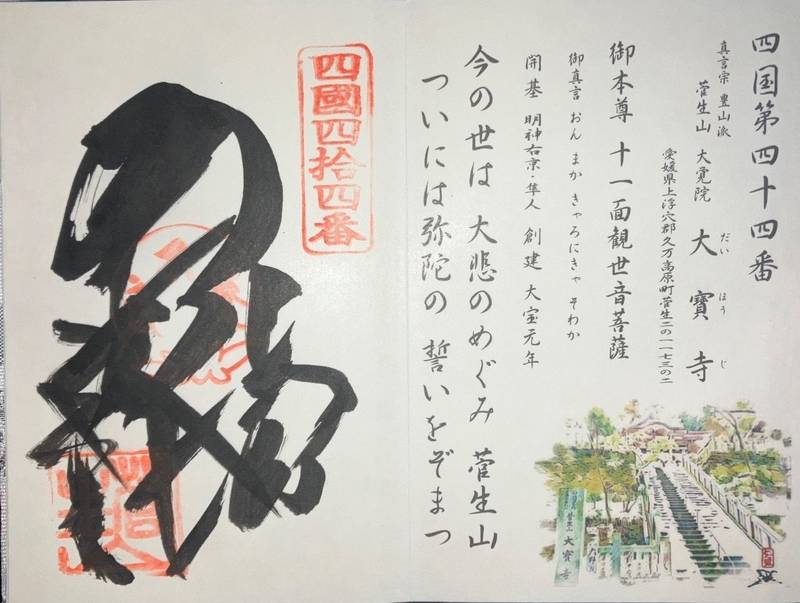 四国第四十四番
真言宗 豊山派
菅生山 大覚院 大寶寺
だい ほう じ
愛媛県上浮穴郡久万高原町菅生二の一一七三の二
御本尊 十一面観世音菩薩
御真言 おん まか きゃろにきゃ そわか
開基 明神右京・隼人 創建 大宝元年
今の世は 大悲のめぐみ 菅生山
ついには弥陀の 誓いをぞまつ
大寶寺
四國四拾四番